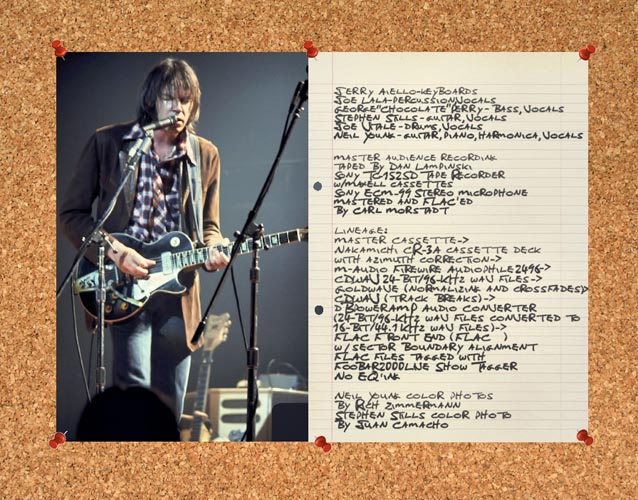 JERRY AIELLO-KEYBOARDS
JOE LALA-PERCUSSION,VOCALS
GEORGE "CHOCOLATE" PERRY - BASS, VOCALS
STEPHEN STILLS - GUITAR, VOCALS
JOE VITALE - DRUMS, VOCALS
NEIL YOUNG - GUITAR, PIANO, HARMONICA, VOCALS
MASTER AUDIENCE RECORDING
TAPED BY DAN LAMPINSKI
SONY TC-152SD TAPE RECORDER
W/MAXELL CASSETTES
SONY ECM-99 STEREO MICROPHONE
MASTERED AND FLAC'ED
BY CARL MORSTADT
LINEAGE:
MASTER CASSETTE->
NAKAMICHI CR-3A CASSETTE DECK
WITH AZIMUTH CORRECTION->
M-AUDIO FIREWIRE AUDIOPHILE 2496->
CDWAV 24-BIT/96-KHZ WAV FILES->
GOLDWAVE (NORMALIZING AND CROSSFADES)>
CDWAV (TRACK BREAKS)->
DBPOWERAMP AUDIO CONVERTER
(24-BIT/96-KHZ WAV FILES CONVERTED TO
16-BIT/44.1 KHZ WAV FILES)->
FLAC FRONT END (FLAC )
W/SECTOR BOUNDARY ALIGNMENT
FLAC FILES TAGGED WITH
FOOBAR2000LIVE SHOW TAGGER
NO EQ'ING
NEIL YOUNG COLOR PHOTOS
BY RICH ZIMMERMANN
STEPHEN STILLS COLOR PHOTO
BY JUAN CAMACHO